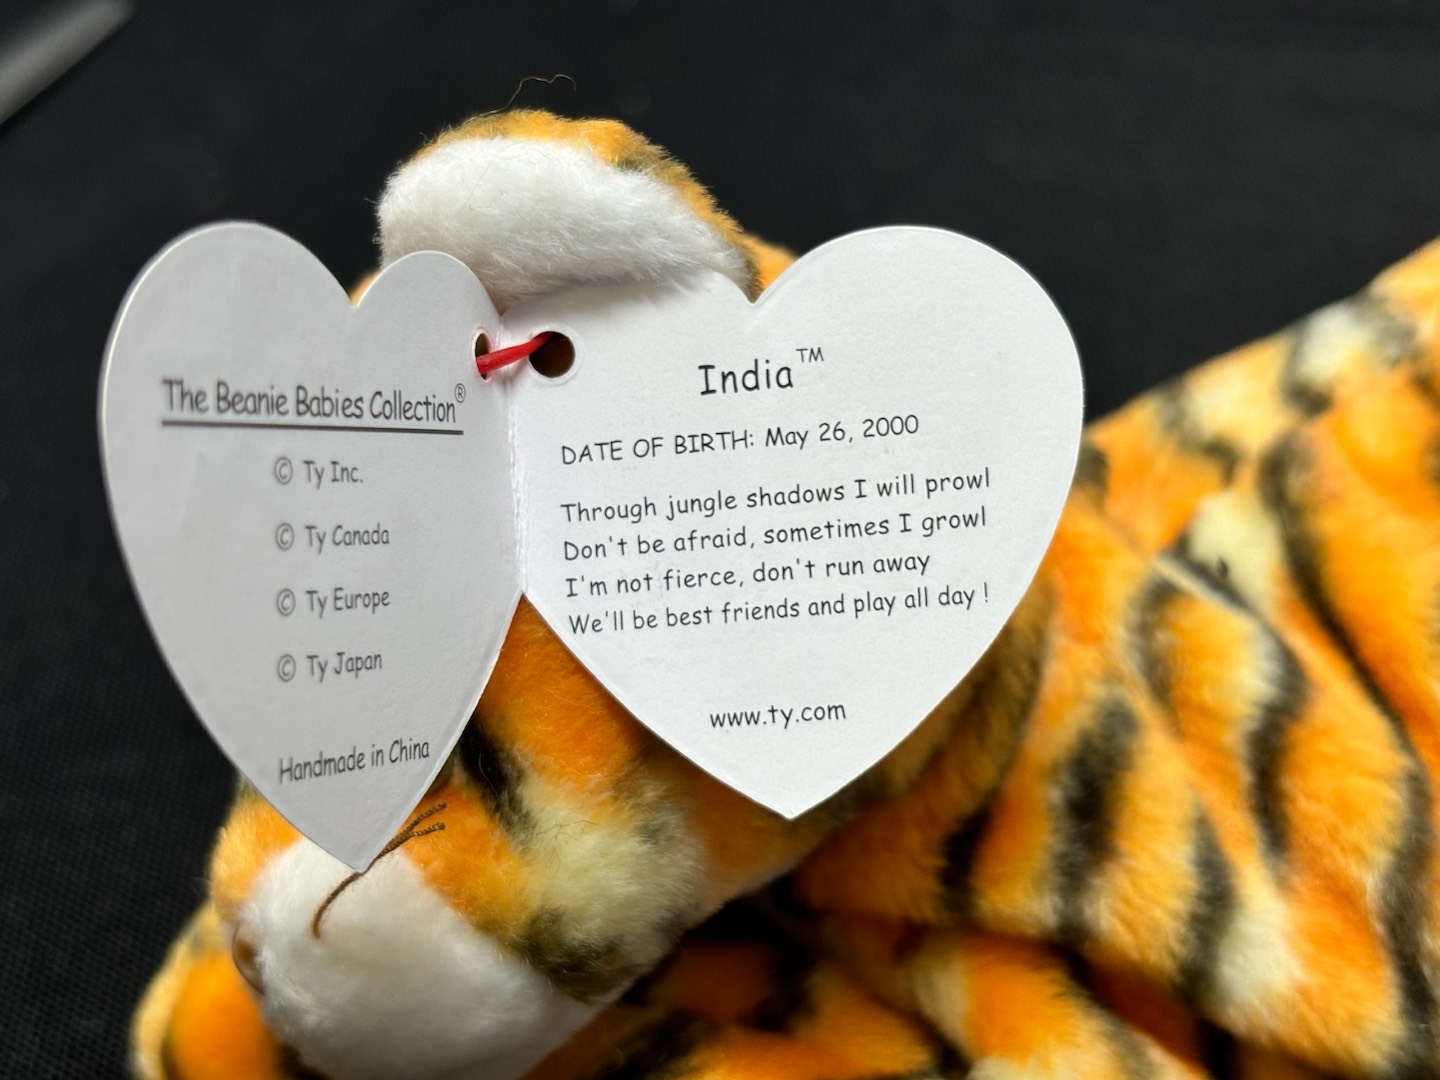 The Beanie Babies Collection®
© Ty Inc.
© Ty Canada
© Ty Europe
© Ty Japan
Handmade in China
India™
DATE OF BIRTH: May 26, 2000
Through jungle shadows I will prowl
Don't be afraid, sometimes I growl
I'm not fierce, don't run away
We'll be best friends and play all day !
www.ty.com